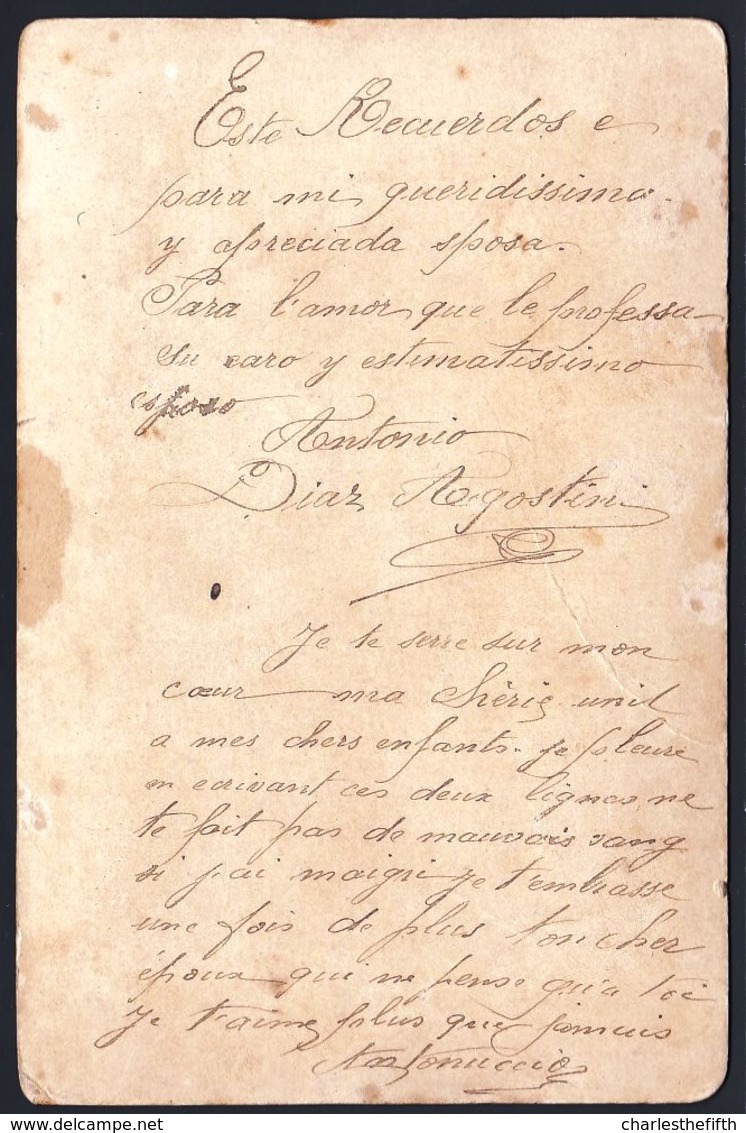 Este Recuerdos e
para mi queridissima
y apreciada sposa.
Para l'amor que le professa
su caro y estimatissimo
esposo
Antonio
Diaz Agostini
Je te serre sur mon
cœur ma Chérie unit
a mes chers enfants. je pleure
en ecrivant ces deux lignes, ne
te fait pas de mauvais sang
si j'ai maigri je t'embrasse
une fois de plus ton cher
époux qui ne pense qu'a toi
Je t'aime plus que jamais
Antonuccio
charlesthefifth